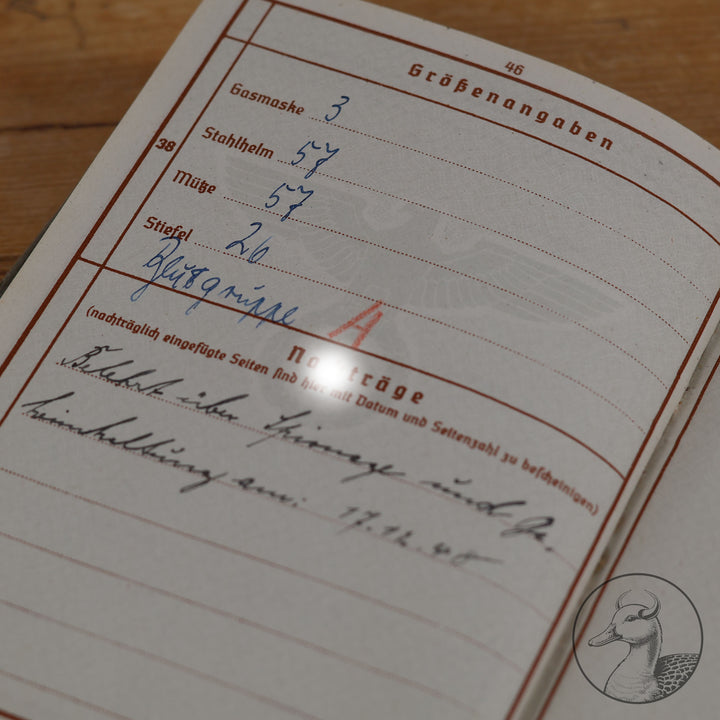 46
Größenangaben
38
Gasmaske 3
Stahlhelm 57
Mütze 57
Stiefel 26
Blutgruppe A
Nachträge
(nachträglich eingefügte Seiten sind hier mit Datum und Seitenzahl zu bescheinigen)
Belehrt über Spionage und Ge-
heimhaltung am: 17.12.